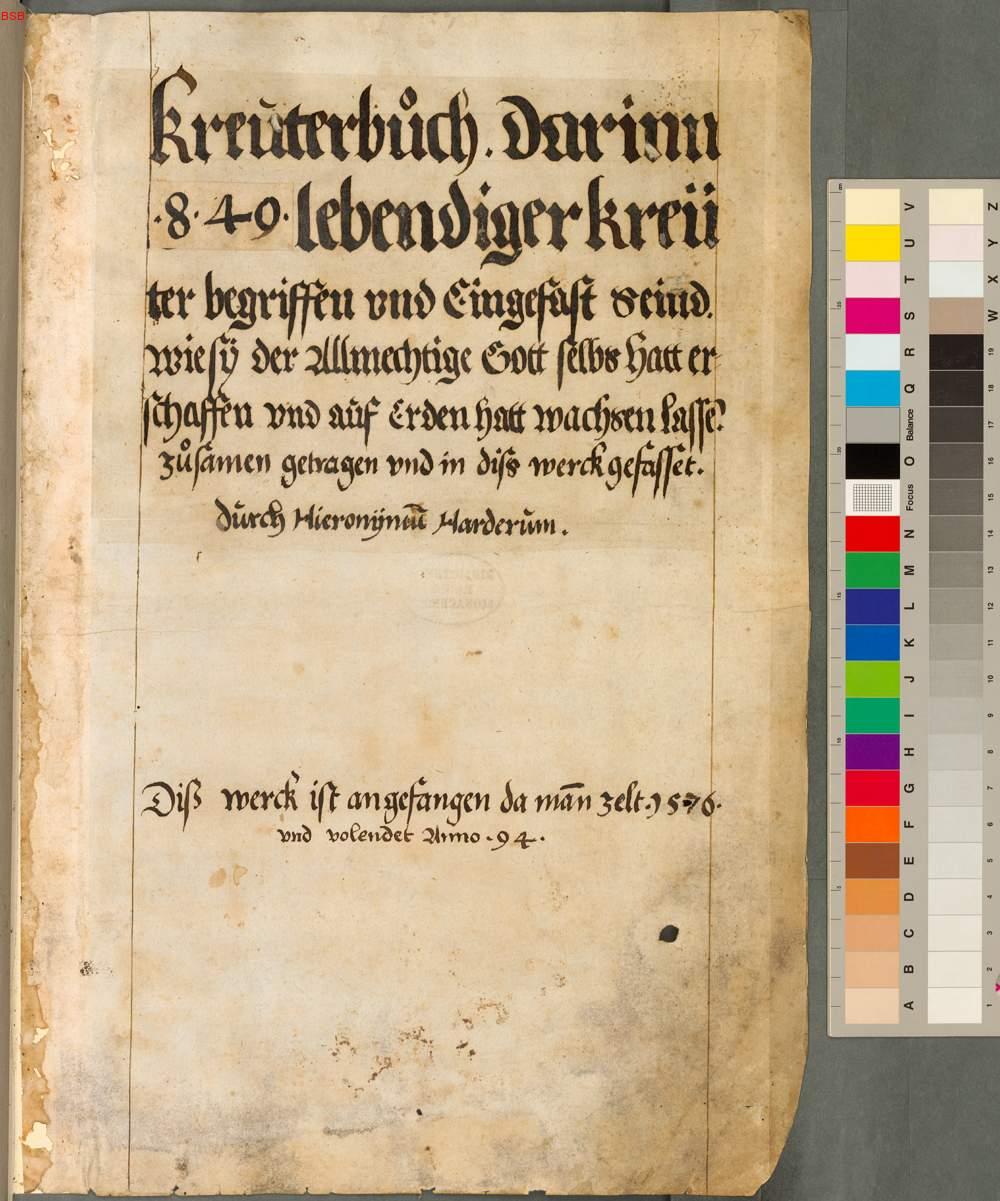 BSB
Kreüterbůch. Darinn
·8·49· lebendiger kreü
ter begriffen vnd Eingefast seind.
wie sÿ der Allmechtige Gott selbs hatt er¬
schaffen vnd auf Erden hatt wachsen lasse͂.
zůsamen getragen vnd in diss werck gefasset.
durch Hieronÿmū Harderum.
Diß werck ist angefangen da mān zelt · 1576 ·
vnd volendet Anno · 94 ·
V U T S R Q Balance O Focus N M L K J I H G F E D C B A
Z Y X W 19 18 17 16 15 14 13 12 11 10 9 8 7 6 5 4 3 2 1